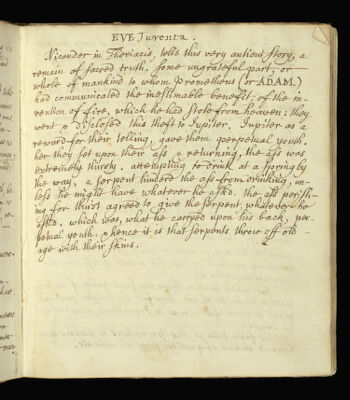 EVE Juventa.
Nicander in Theriacis, tells this very antient story, a
remain of sacred truth. some ungrateful part, or
whole of mankind to whom Prometheus (or ADAM)
had communicated the inestimable benefit, of the in-
vention of fire, which he had stole from heaven: they
went & disclosed this theft to Jupiter. Jupiter as a
reward for their telling, gave them perpetual youth.
her they set upon their ass & returning, the ass was
extremely thirsty, attempting to drink at a spring by
the way, a serpent hinderd the ass from drinking, un-
less he might have whatever he askd. the ass perish-
ing for thirst agreed to give the serpent, whatever he
askd. which was, what he carryed upon his back, per-
petual youth. & hence it is that serpents throw off old
age with their skins.